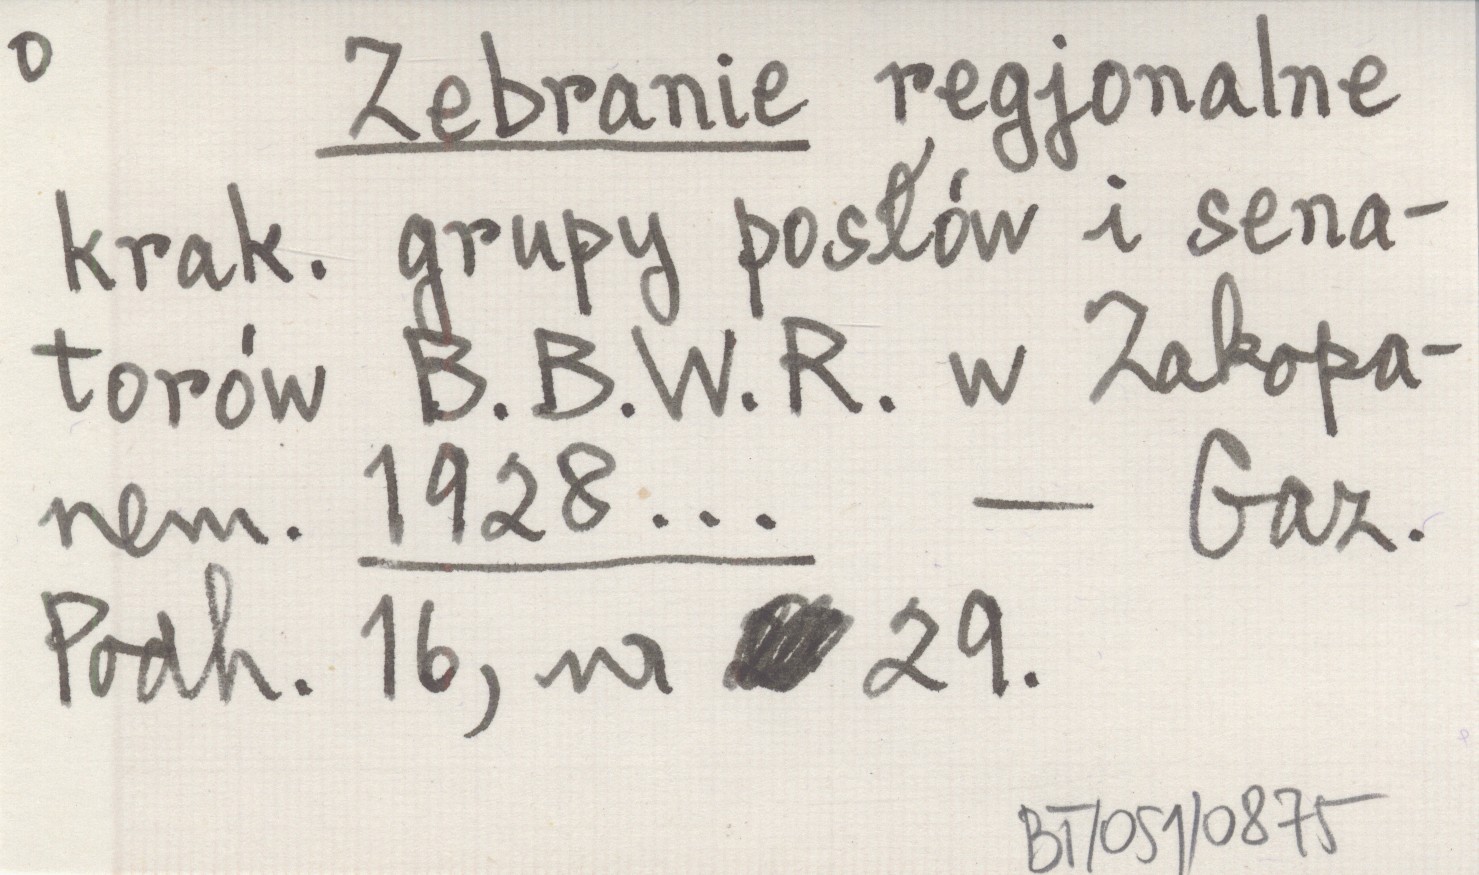 o
Zebranie regjonalne
krak. grupy posłów i sena-
torów B.B.W.R. w Zakopa-
nem. 1928... — Gaz.
Podh. 16, nr 29.
BT/051/0875